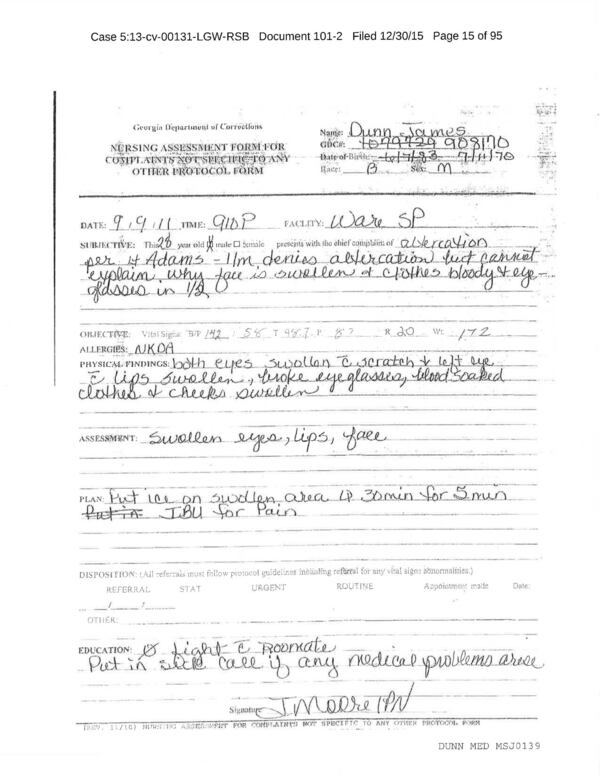 Case 5:13-cv-00131-LGW-RSB Document 101-2 Filed 12/30/15 Page 15 of 95
Georgia Department of Corrections
NURSING ASSESSMENT FORM FOR
COMPLAINTS NOT SPECIFIC TO ANY
OTHER PROTOCOL FORM
Name: Dunn James
GDC#: 1079729 908170
Date of Birth: 7/11/70
Race: B Sex: M
DATE: 9/9/11 TIME: 910P FACILITY: Ware SP
SUBJECTIVE: This 28 year old male ☐ female presents with the chief complaint of altercation
per Lt Adams - I/m denies altercation but cannot
explain why face is swollen & clothes bloody & eye-
glasses in 1/2
OBJECTIVE: Vital Signs: B/P 142 / 58 T 98.7 P 8? R 20 Wt 172
ALLERGIES: NKDA
PHYSICAL FINDINGS: both eyes swollen c scratch ↓ left eye
c lips swollen, broke eyeglasses, blood soaked
clothes & cheeks swollen
ASSESSMENT: Swollen eyes, lips, face
PLAN: Put ice on swollen area q 30min for 5 min
Put in IBU for Pain
DISPOSITION: (All referrals must follow protocol guidelines including referral for any vital signs abnormalities.)
REFERRAL STAT URGENT ROUTINE Appointment made Date:
OTHER:
EDUCATION: Ø fight c Roomate
Put in sick call if any medical problems arise.
Signature J Moore LPN
(REV. 11/10) NURSING ASSESSMENT FOR COMPLAINTS NOT SPECIFIC TO ANY OTHER PROTOCOL FORM
DUNN MED MSJ0139